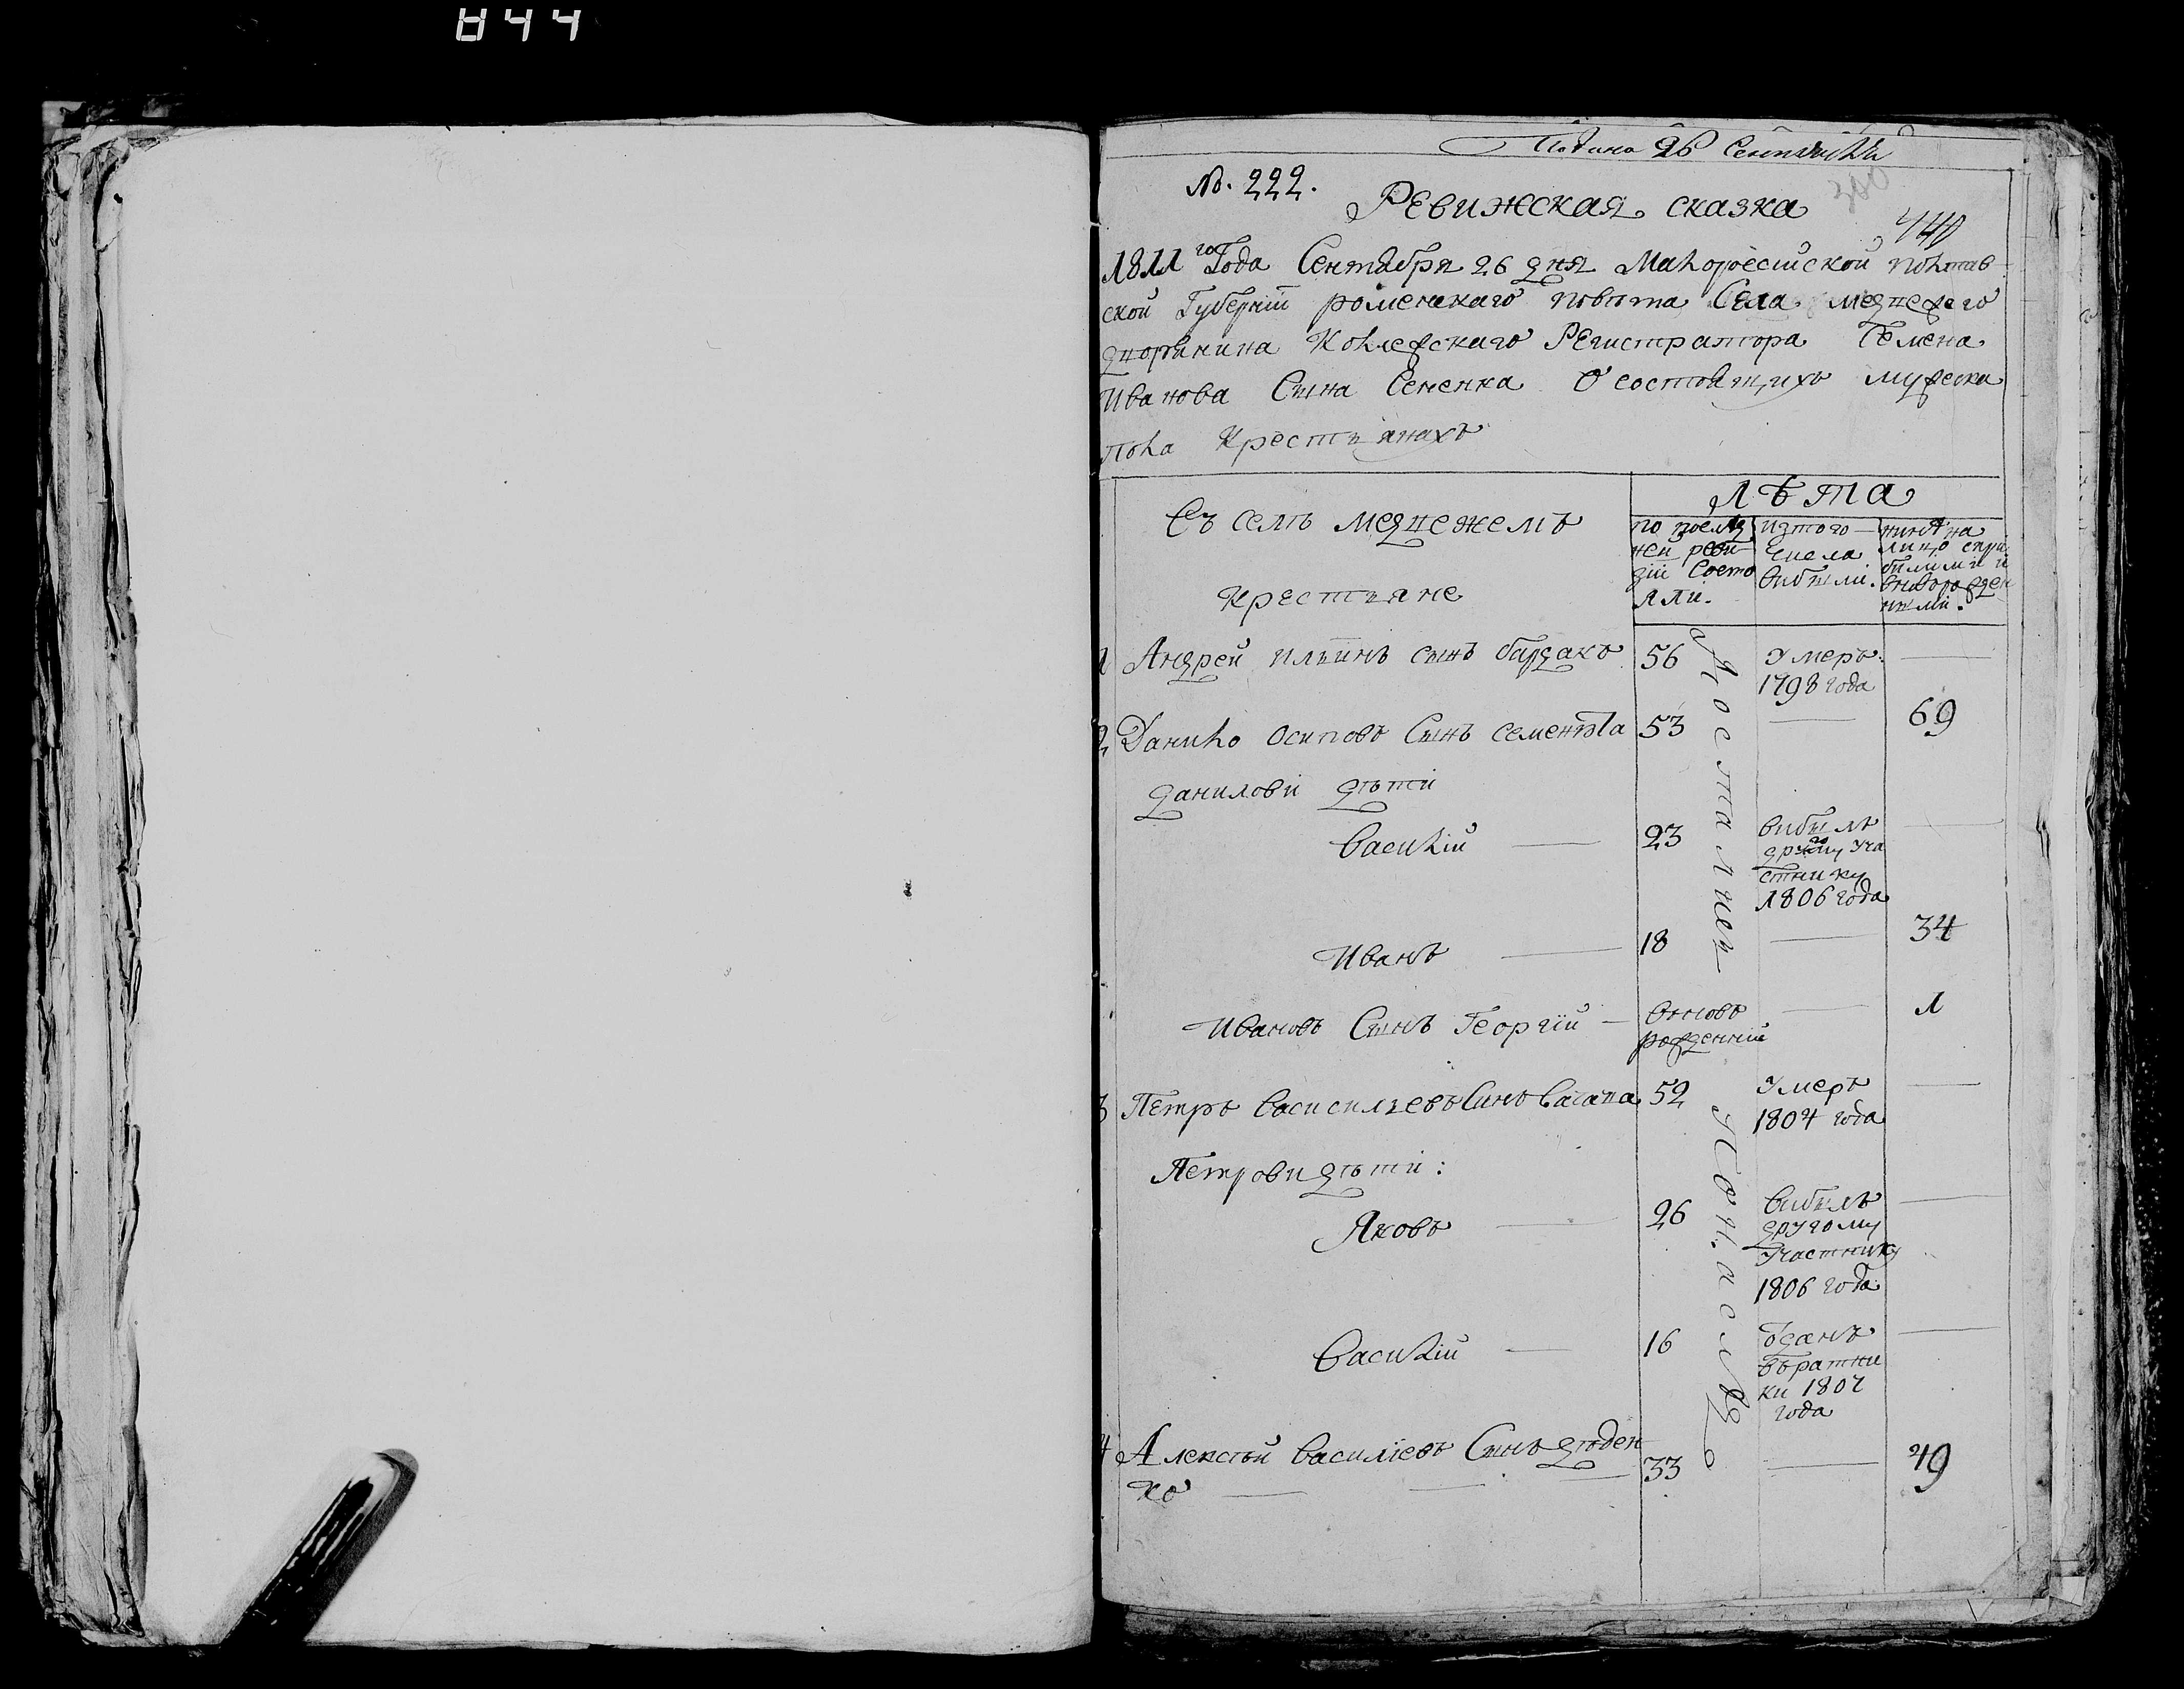 844
Подана 26 Сентября
№. 222.
300
Ревижская сказка
440
1811го Года Сентября 26 дня Малоросийской полтав
ской Губернїи роменскаго повѣта Села медвежего
дворянина Колежскаго Регистратора Семена
Иванова Сына Сененка О состоящихъ мужеска
пола Крестьянахъ
Въ селѣ медвежемъ
Крестьяне
Лѣта
по послѣд
ней реви
зїи Состо
яли.
изтого
числа
вибыли.
нинѣ на
лицо спри
былими и
вноворожден
ными.
1 Андрей ильинъ сынъ бардакъ 56 Умеръ 1798 года
2 Данило осиповъ Сынъ семенюта 53 69
данилови дѣти
Василїй 23 вибылъ
другому уча
стнику
1806 года
Иванъ 18 34
Ивановъ Сынъ Георгїй вновъ
рожденнїй 1
3 Петръ Васисильевъ Синъ 52 Умеръ
1804 года
Петрови дѣти:
Яковъ 26 вибылъ
другому
участнику
1806 года
Василїй 16 оданъ
врат­ни
ки 1807
года
4 Алексѣй Василїевъ Сынъ дѣден
ко 33 49